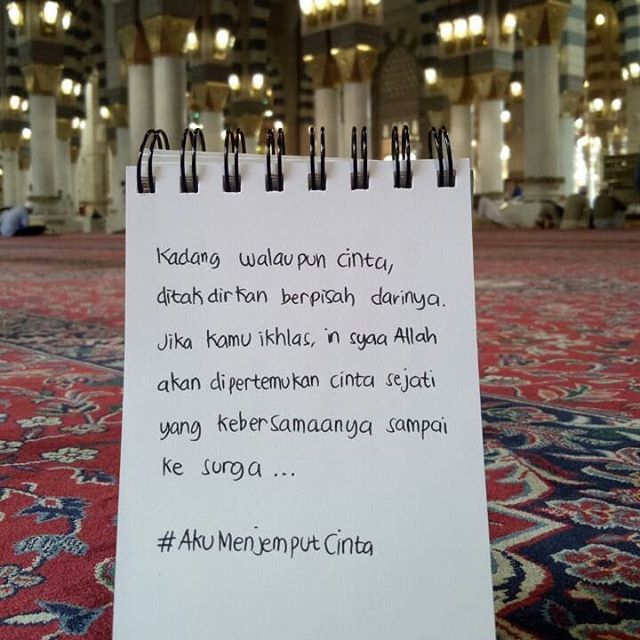 Kadang walaupun cinta,
ditakdirkan berpisah darinya.
Jika kamu ikhlas, in syaa Allah
akan dipertemukan cinta sejati
yang kebersamaanya sampai
ke surga ...
#AkuMenjemputCinta